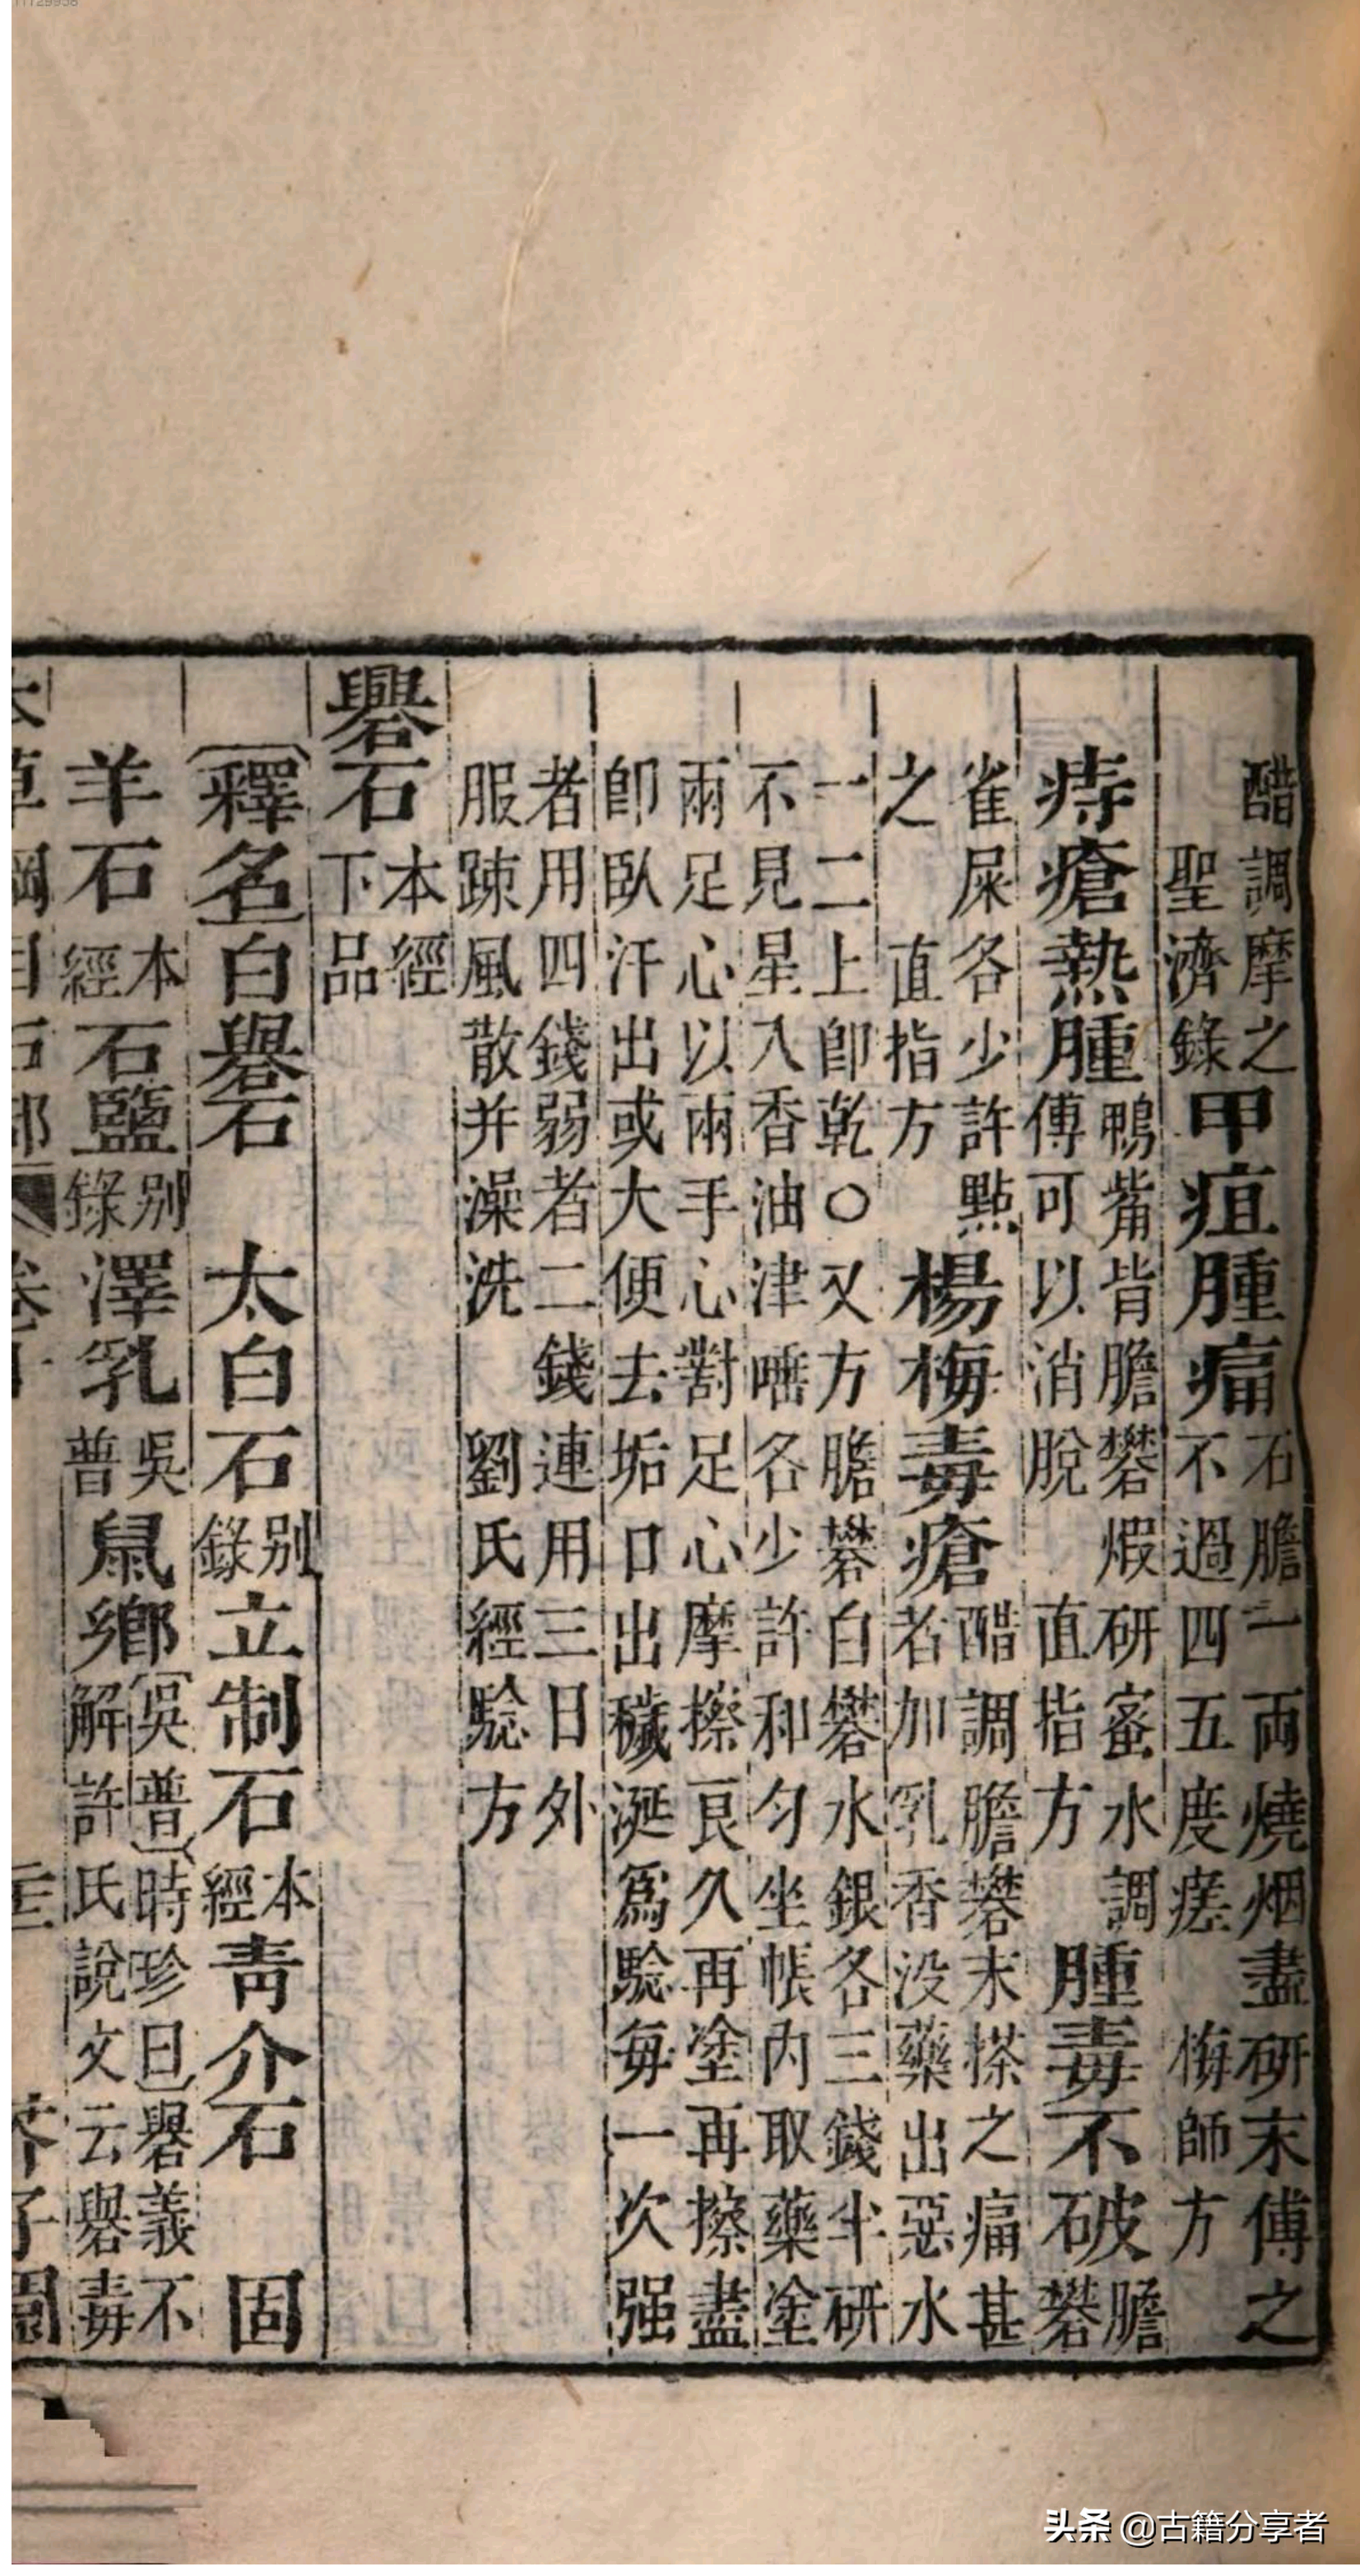 醋調摩之
聖濟錄
甲疽腫痛
石膽一兩燒烟盡研末傅之
不過四五度瘥　梅師方
痔瘡熱腫
鴨觜青膽礬煅研蜜水調
傅可以消脫　直指方
腫毒不破
膽
礬
雀屎各少許點
之　直指方
楊梅毒瘡
醋調膽礬末搽之痛甚
者加乳香没藥出惡水
一二上即乾〇又方膽礬白礬水銀各三錢半研
不見星入香油津唾各少許和匀坐帳内取藥塗
兩足心以兩手心對足心摩擦良久再塗再擦盡
卽臥汗出或大便去垢口出穢涎爲驗每一次强
者用四錢弱者二錢連用三日外
服疎風散并澡洗　劉氏經驗方
礜石
本經
下品
釋名白礜石　太白石
别
錄
立制石
本
經
青介石　固
羊石
本
經
石鹽
别
錄
澤乳
吳
普
鼠鄉
吳普時珍曰礜義不
解許氏說文云礜毒
頭条 @古籍分享者